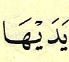 يَدَيْهَا